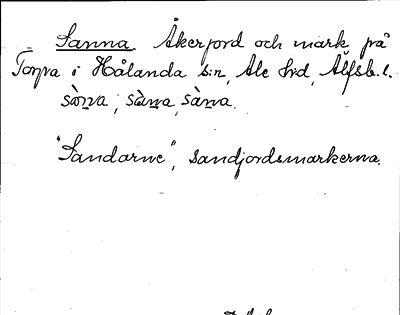 Sanna. Åkerjord och mark på
Torpa i Hålanda s:n, Ale hd, Älfsb. l.
sàn̥a, sàn̥a, sàn̥a.
"Sandarne", sandjordsmarkerna.